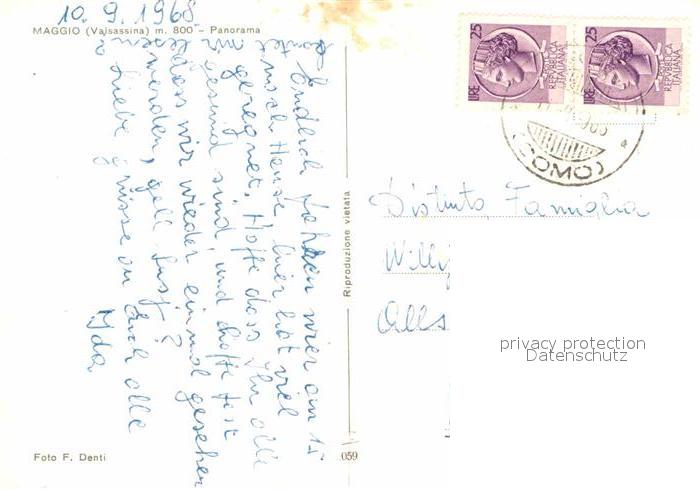 10.9.1968
MAGGIO (Valsassina) m. 800 - Panorama
Endlich fahren wier am 15
noch Hause, hier hat viel
geregnet. Hoffe dass Ihr alle
gesund sind, und hoffe fest
dass wir wieder einmal gesehen
werden, gell
Liebe Grüsse an Euch alle
Ida
Foto F. Denti
Riproduzione vietata
059
25 LIRE REPVBBLICA ITALIANA
25 LIRE REPVBBLICA ITALIANA
(COMO)
Distinta Famiglia
Willy
Alls
privacy protection
Datenschutz